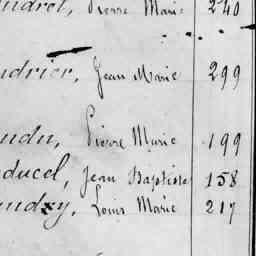 ndret, Pierre Marie 240
ndrier, Jean Marie 299
ndu, Pierre Marie 199
ducel, Jean Baptiste 158
udry, Louis Marie 217